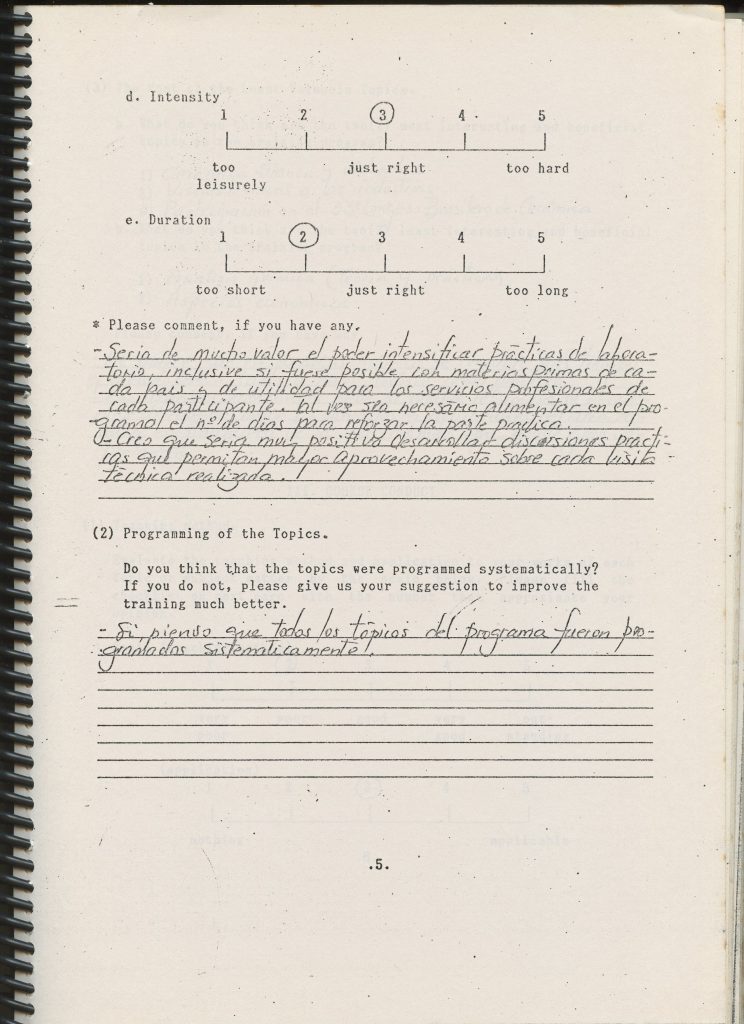 d. Intensity
1 2 3 4 5
too just right too hard
leisurely
e. Duration
1 2 3 4 5
too short just right too long
* Please comment, if you have any.
- Seria de mucho valor el poder intensificar prácticas de labora-
torio, inclusive si fuese posible con materias primas de ca-
da pais y de utilidad para los servicios profesionales de
cada participante. Tal vez sea necesario alimentar en el pro-
grama el nº de dias para reforzar la parte practica.
- Creo que seria muy positivo desarrollar discusiones practi-
cas que permitan mayor aprovechamiento sobre cada visita
técnica realizada.
(2) Programming of the Topics.
Do you think that the topics were programmed systematically?
If you do not, please give us your suggestion to improve the
training much better.
- Si, pienso que todos los tópicos del programa fueron pro-
gramados sistematicamente.
.5.